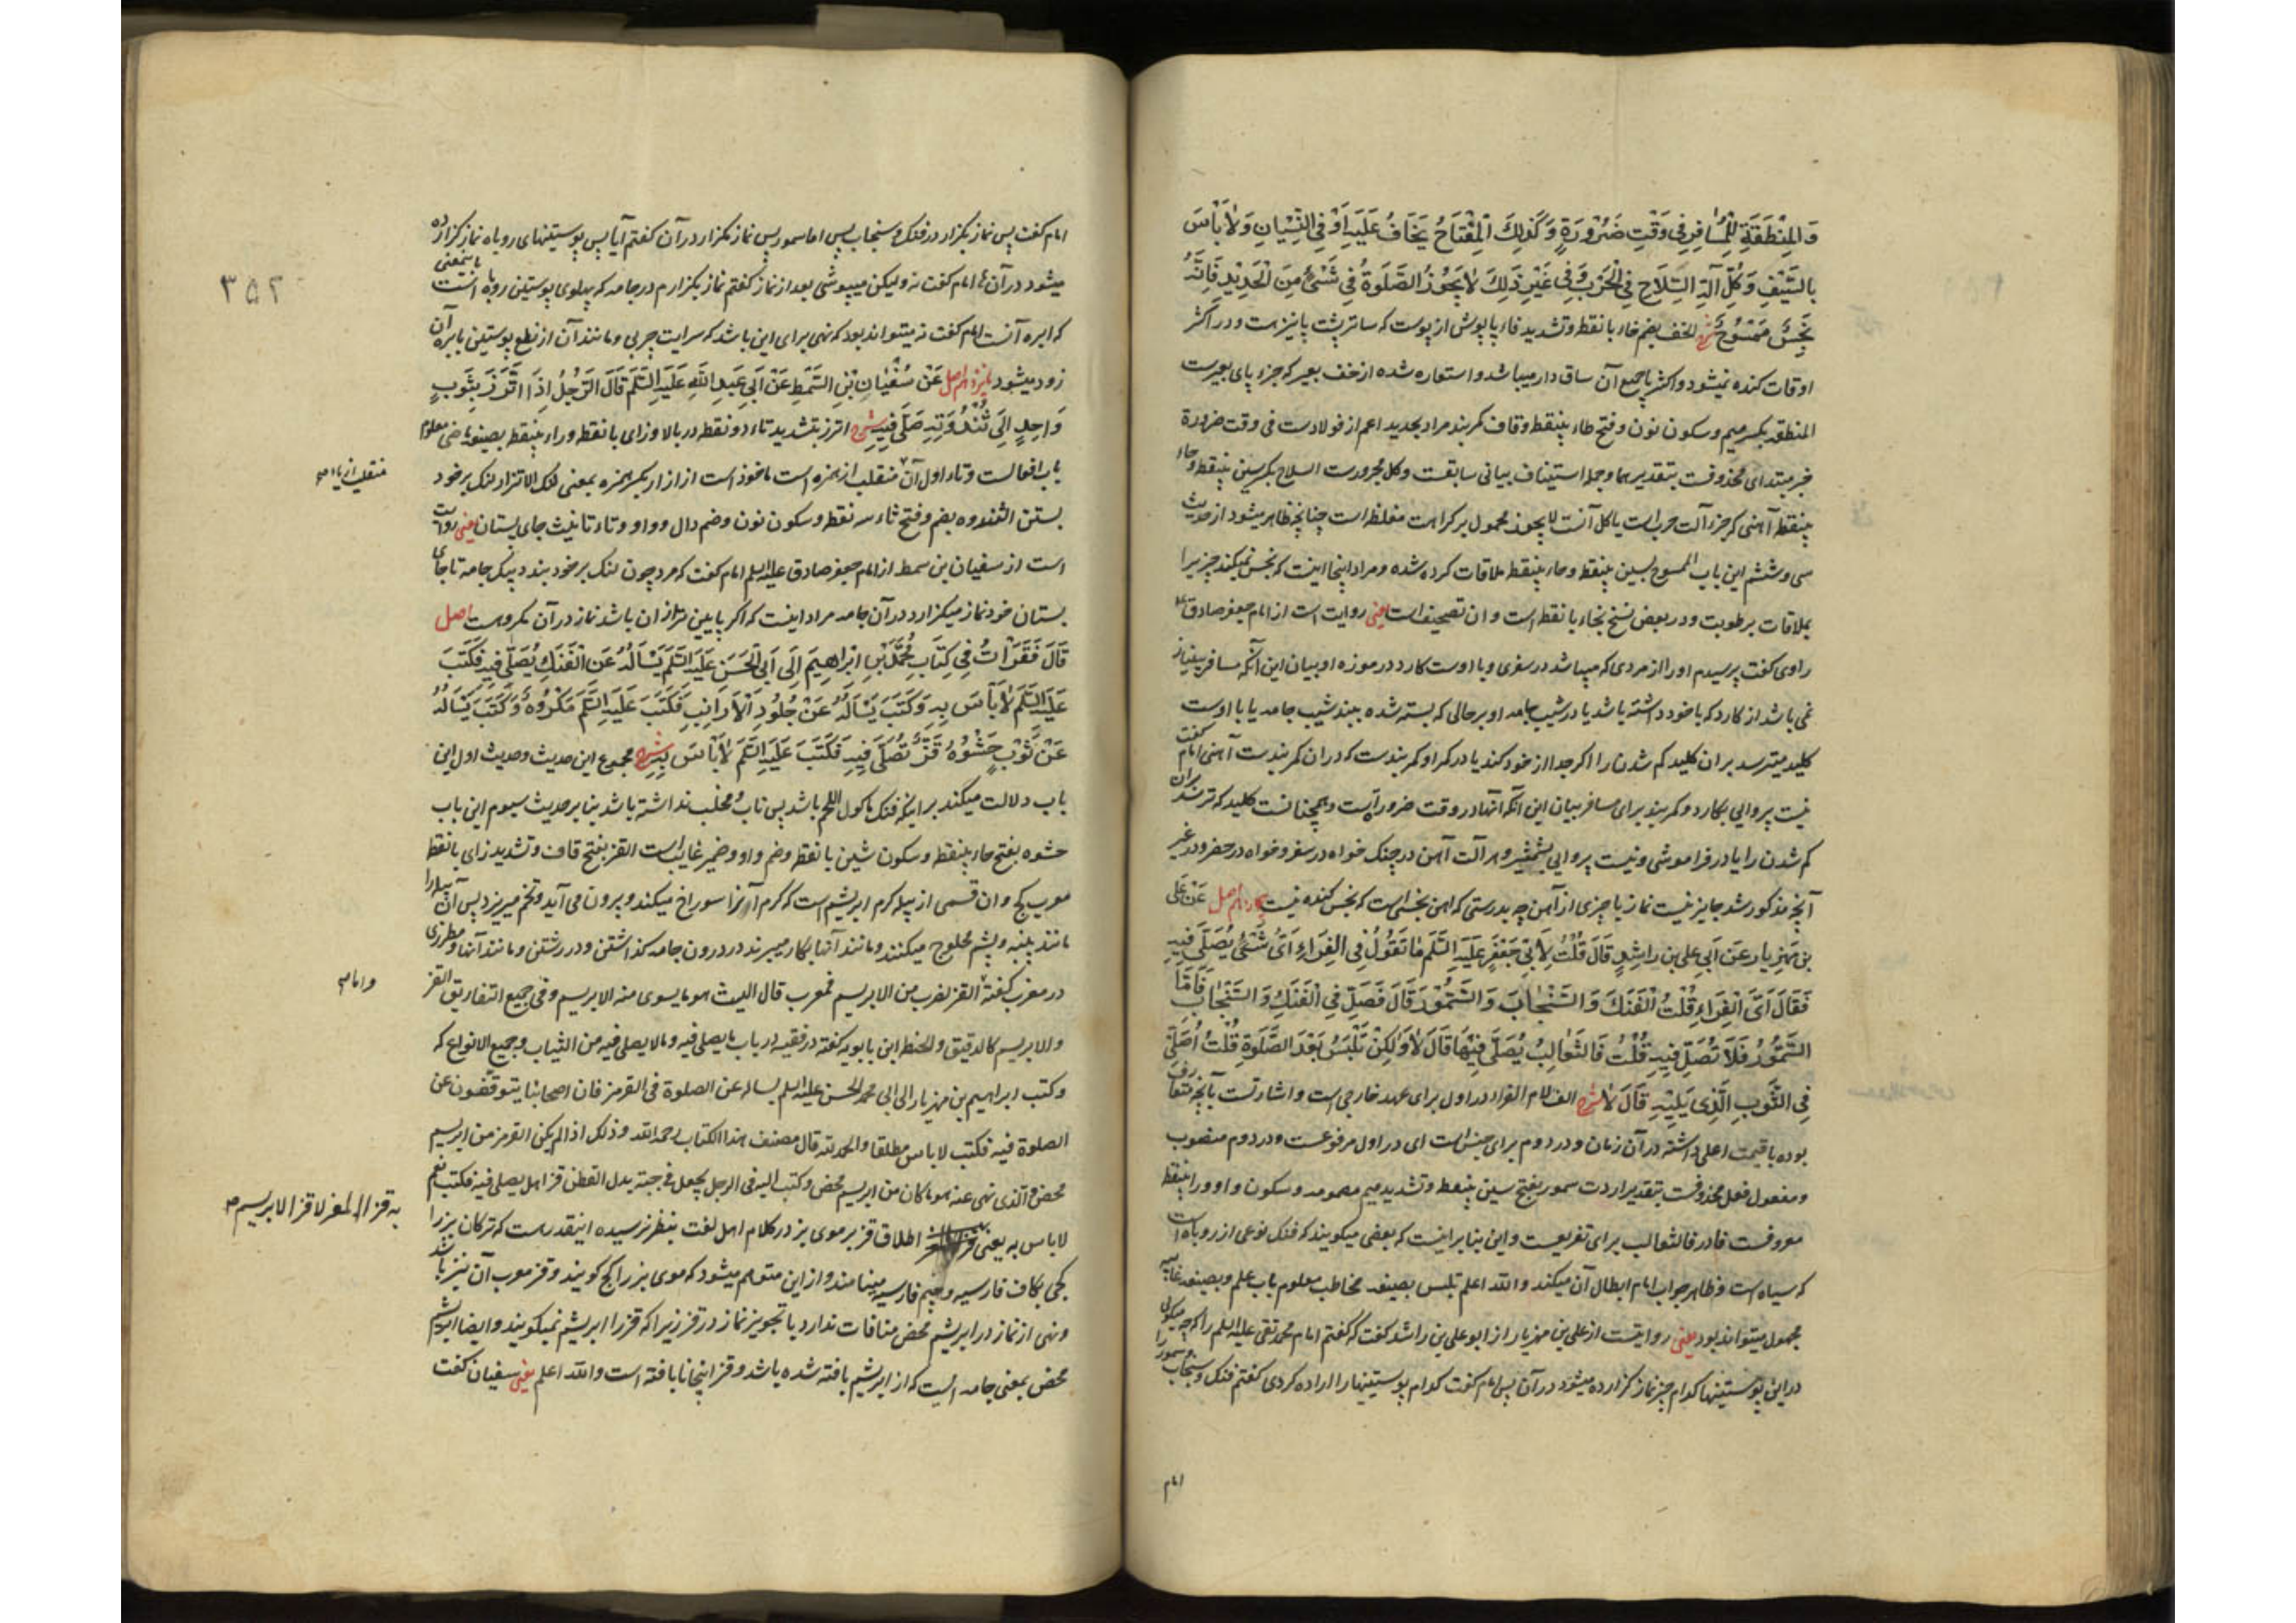 وَالْمِنْطَقَةِ لِلْمُسَافِرِ فِی وَقْتِ ضَرُورَةٍ وَكَذَلِكَ الْمِفْتَاحُ يَخَافُ عَلَيْهِ أَوْ فِی النِّسْيَانِ وَلَا بَأْسَ
بِالسَّيْفِ وَكُلِّ آلَةِ السِّلَاحِ فِی الْحَرْبِ وَفِی غَيْرِ ذَلِكَ لَا يَجُوزُ الصَّلَوةُ فِی شَیْءٍ مِنَ الْحَدِيدِ فَإِنَّهُ
نَجِسٌ مَمْسُوحٌ شرح الخف بضم خاء با نقطه و تشدید فاء پاپوش از پوست که ساتر پشت پا نیز هست و در اکثر
اوقات کنده نمیشود و اکثر یا جمیع آن ساق دار میباشد و استعاره شده از خف بعیر که جزء پای بعیرست
المنطقه بکسر میم و سکون نون و فتح طاء بینقطه و قاف کمربند مراد بحدید اعم از فولادست فی وقت ضرورة
خبر مبتدای محذوفست بتقدیر هما و جمله استیناف بیانی سابقست و کل مجرورست السلاح بکسر سین بینقطه و حاء
بینقطه آهنی که جزء آلت حربست یا کل آنست لا یجوز محمول بر کراهت مغلظه است چنانچه ظاهر میشود از حدیث
سی و ششم این باب الممسوح بسین بینقطه و حاء بینقطه ملاقات کرده شده و مراد اینجا اینست که نجس نمیکند چیزیرا
بملاقات برطوبت و در بعض نسخ بخاء با نقطه است و ان تصحیف است یعنی روایت است از امام جعفر صادق ع
راوی گفت پرسیدم او را از مردی که میباشد در سفری و با اوست کارد در موزه او بیان این آنکه مسافر بینیاز
نمی باشد از کارد که با خود داشته باشد یا در شیب جامه او بر حالی که بسته شده ببند شیب جامه یا با اوست
کلید میترسد بر ان کلید کم شدن را اگر جدا از خود کند یا در کمر او کمربندست که دران کمربندست آهنی امام گفت
نیست پروایی بکارد و کمربند برای مسافر بیان این آنکه انها در وقت ضرورتست و همچنانست کلید که ترسند بران
کم شدن را یا در فراموشی و نیست پروایی بشمشیر و هر آلت آهن در جنک خواه در سفر و خواه در حضر و در غیر
آنچه مذکور شد جایز نیست نماز با چیزی از آهن چه بدرستی که اهن نجسی است که نجس کننده نیست چهاردهم اصل عَنْ عَلِیِّ
بْنِ مَهْزِيَارَ عَنْ أَبِی عَلِیِّ بْنِ رَاشِدٍ قَالَ قُلْتُ لِأَبِی جَعْفَرٍ عَلَيْهِ السَّلَمُ مَا تَقُولُ فِی الْفِرَاءِ أَیُّ شَیْءٍ يُصَلَّی فِيهِ
فَقَالَ أَیَّ الْفِرَاءِ قُلْتُ الْفَنَكَ وَالسَّنْجَابَ وَالسَّمُّورَ قَالَ فَصَلِّ فِی الْفَنَكِ وَالسَّنْجَابِ فَأَمَّا
السَّمُّورُ فَلَا تُصَلِّ فِيهِ قُلْتُ فَالثَّعَالِبُ يُصَلَّی فِيهَا قَالَ لَا وَلَكِنْ تَلْبَسُ بَعْدَ الصَّلَوةِ قُلْتُ أُصَلِّی
فِی الثَّوْبِ الَّذِی يَلِيهِ قَالَ لَا شرح الف لام الفراء در اول برای عهد خارجی است و اشارتست بآنچه متعارف
بوده با قیمت اعلی داشته در آن زمان و در دوم برای جنس است ای در اول مرفوعست و در دوم منصوب
و مفعول فعل محذوفست بتقدیر اردت سمور بفتح سین بینقطه و تشدید میم مضمومه و سکون واو و راء بینقطه
معروفست فاء در فالثعالب برای تفریعست و این بنا براینست که بعضی میگویند که فنک نوعی از روباه است
که سیاه است و ظاهر جواب امام ابطال آن میکند والله اعلم تلبس بصیغه مخاطب معلوم باب علم و بصیغه غایبه
مجهول میتواند بود یعنی روایتست از علی بن مهزیار از ابو علی بن راشد گفت که گفتم امام محمد تقی علیه السلم را که چه میگویی
در این پوستینها کدام چیز نماز گزارده میشود در آن پس امام گفت کدام پوستینها را اراده کردی گفتم فنک و سنجاب و سمور را
امام
۳۵۲
امام گفت پس نماز بگزار در فنک و سنجاب پس اما سمور پس نماز مگزار در آن گفتم آیا پس پوستینهای روباه نماز گزارده
میشود در آن امام گفت نه ولیکن میپوشی بعد از نماز گفتم نماز بگزارم در جامه که پهلوی پوستین روباه است باینمعنی
که ابره آنست امام گفت نه میتواند بود که نهی برای این باشد که سرایت چربی و مانند آن از نطع پوستین بابره آن
زود میشود پانزدهم اصل عَنْ سُفْيَانَ بْنِ السِّمْطِ عَنْ أَبِی عَبْدِ اللهِ عَلَيْهِ السَّلَمُ قَالَ الرَّجُلُ إِذَا اتَّزَرَ بِثَوْبٍ
وَاحِدٍ إِلَى ثَنْدُوَتِهِ صَلَّى فِيهِ شرح اتزر بتشدید تاء دو نقطه در بالا و زای با نقطه و راء بینقطه بصیغه ماضی معلوم
باب افتعالست و تاء اول آن منقلب از همزه است ماخوذ است از ازار بکسر همزه بمعنی لنک الاتزار لنک بر خود
منقلب از یا
بستن الثندوه بضم و فتح ثاء سه نقطه و سکون نون و ضم دال و واو و تاء تانیث جای پستان یعنی روایت
است از سفیان بن سمط از امام جعفر صادق علیه السلم امام گفت که مرد چون لنک بر خود بندد بیک جامه تا جای
پستان خود نماز میگزارد در آن جامه مراد اینست که اگر پایین تر از ان باشد نماز در آن مکروهست اصل
قَالَ فَقَرَأْتُ فِی كِتَابِ مُحَمَّدِ بْنِ إِبْرَاهِيمَ إِلَى أَبِی الْحَسَنِ عَلَيْهِ السَّلَمُ يَسْأَلُهُ عَنِ الْفَنَكِ يُصَلَّى فِيهِ فَكَتَبَ
عَلَيْهِ السَّلَمُ لَا بَأْسَ بِهِ وَكَتَبَ يَسْأَلُهُ عَنْ جُلُودِ الْأَرَانِبِ فَكَتَبَ عَلَيْهِ السَّلَمُ مَكْرُوهٌ وَكَتَبَ يَسْأَلُهُ
عَنْ ثَوْبٍ حَشْوُهُ قَزٌّ تُصَلَّى فِيهِ فَكَتَبَ عَلَيْهِ السَّلَمُ لَا بَأْسَ بِهِ شرح مجموع این حدیث و حدیث اول این
باب دلالت میکند براینکه فنک ماکول اللحم باشد پس ناب و مخلب نداشته باشد بنا بر حدیث سیوم این باب
حشوه بفتح حاء بینقطه و سکون شین با نقطه و ضم واو و ضمیر غایب است القز بفتح قاف و تشدید زای با نقطه
معرب کج و ان قسمی از پیله کرم ابریشم است که کرم آنرا سوراخ میکند و برون می آید و تخم میریزد پس آن پیله را
مانند پنبه و پشم محلوج میکنند و مانند آنها بکار میبرند در درون جامه کذاشتن و در رشتن و مانند آنها و مطرزی
در مغرب گفته القز لضرب من الابریسم فمعرب قال اللیث هو ما یسوی منه الابریسم و فی جمیع التفاریق القز
و اما
والابریسم کالدقیق والحنطة ابن بابویه گفته در فقیه در باب ما یصلی فیه و ما لا یصلی فیه من الثیاب و جمیع الانواع که
و کتب ابراهیم بن مهزیار الی ابی محمد الحسن علیه السلم یساله عن الصلوة فی القرمز فان اصحابنا یتوقفون عن
الصلوة فیه فکتب لا باس مطلقا والحمد لله قال مصنف هذا الکتاب رحمه الله و ذلک اذا لم یکن القرمز من ابریسم
محض و الذی نهی عنه هو ما کان من ابریسم محض و کتب الیه فی الرجل یجعل فی جبته بدل القطن قزا هل یصلی فیه فکتب نعم
لا باس به یعنی اطلاق قز بر موی بز در کلام اهل لغت بنظر نرسیده اینقدر هست که ترکان بز را
به قز المعز لا قز الابریسم
کجی بکاف فارسیه و جیم فارسیه مینامند و از این متوهم میشود که موی بز را کج گویند و قز معرب آن نیز باشد
و نهی از نماز در ابریشم محض منافات ندارد با تجویز نماز در قز زیرا که قز را ابریشم نمیگویند و ایضا ابریشم
محض بمعنی جامه ایست که از ابریشم بافته شده باشد و قز اینجا نابافته است والله اعلم یعنی سفیان گفت